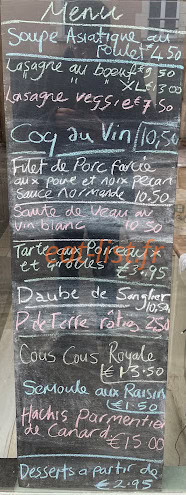 Menu
Soupe Asiatique au
Poulet €4.50
Lasagne au boeuf €9.50
" " XL €13.00
Lasagne veggie €7.50
Coq au Vin 10,50
Filet de Porc farcie
aux poire et noix pecan
Sauce Normande 10.50
Saute de Veau au
vin blanc 10.50
Tarte aux Poireaux
et Girolles €3.95
eat-list.fr
Daube de Sanglier
10,50
P. de Terre rôties 2,50
Cous Cous Royale
€13.50
Semoule aux Raisin
€1.50
Hachis Parmentier
de Canard €15.00
Desserts a partir de
€2.95